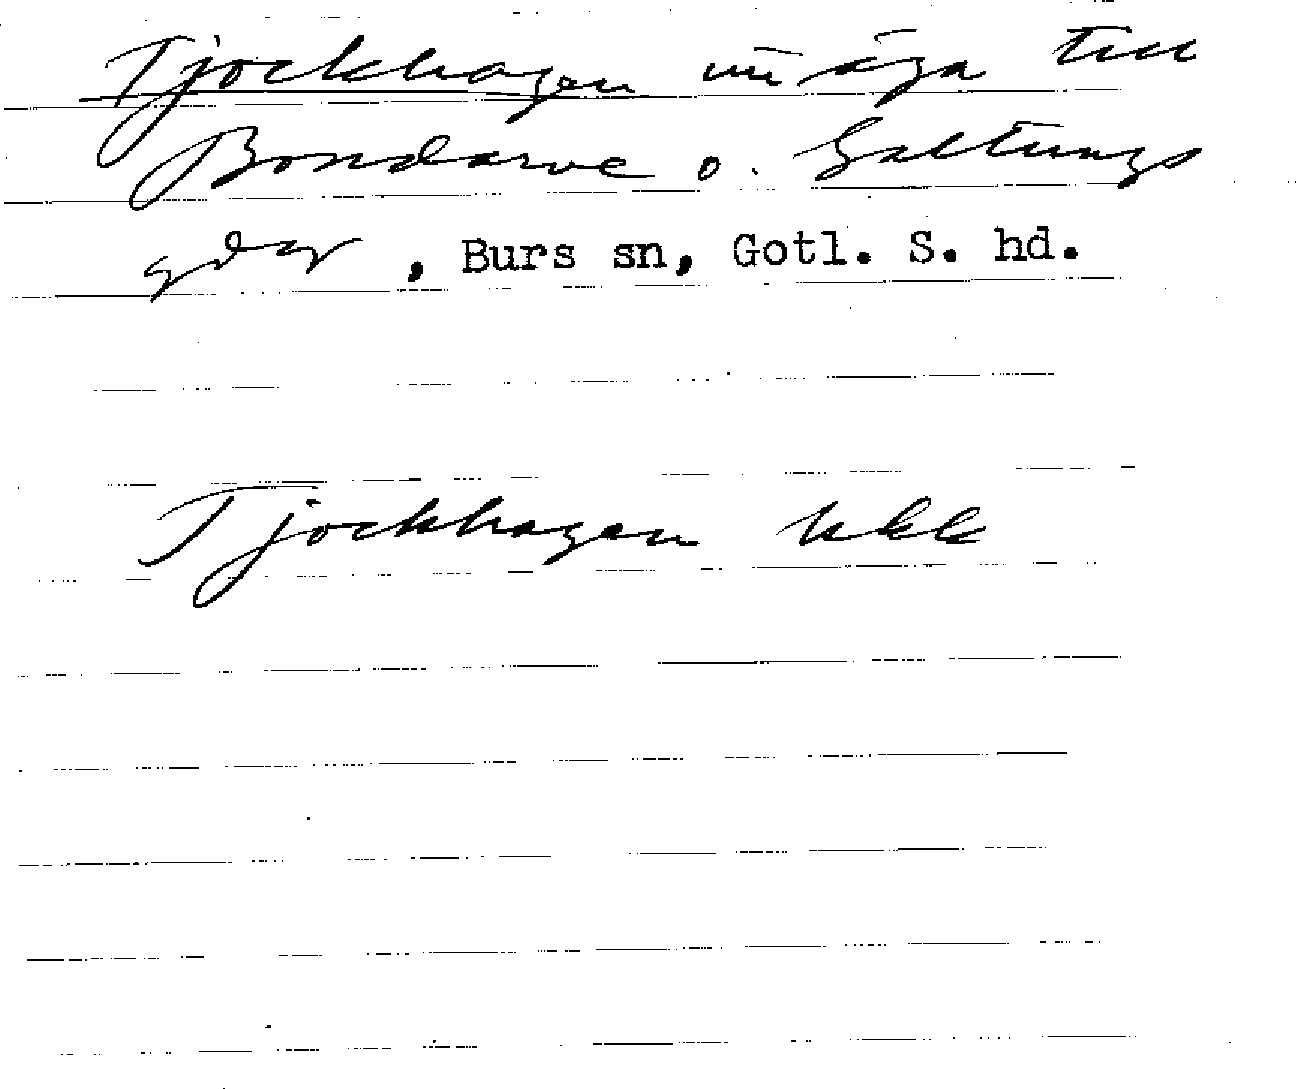 Tjockhagen nu äga till
Bondarve o. Galtungs
gdar, Burs sn, Gotl. S. hd.
Tjockhagen